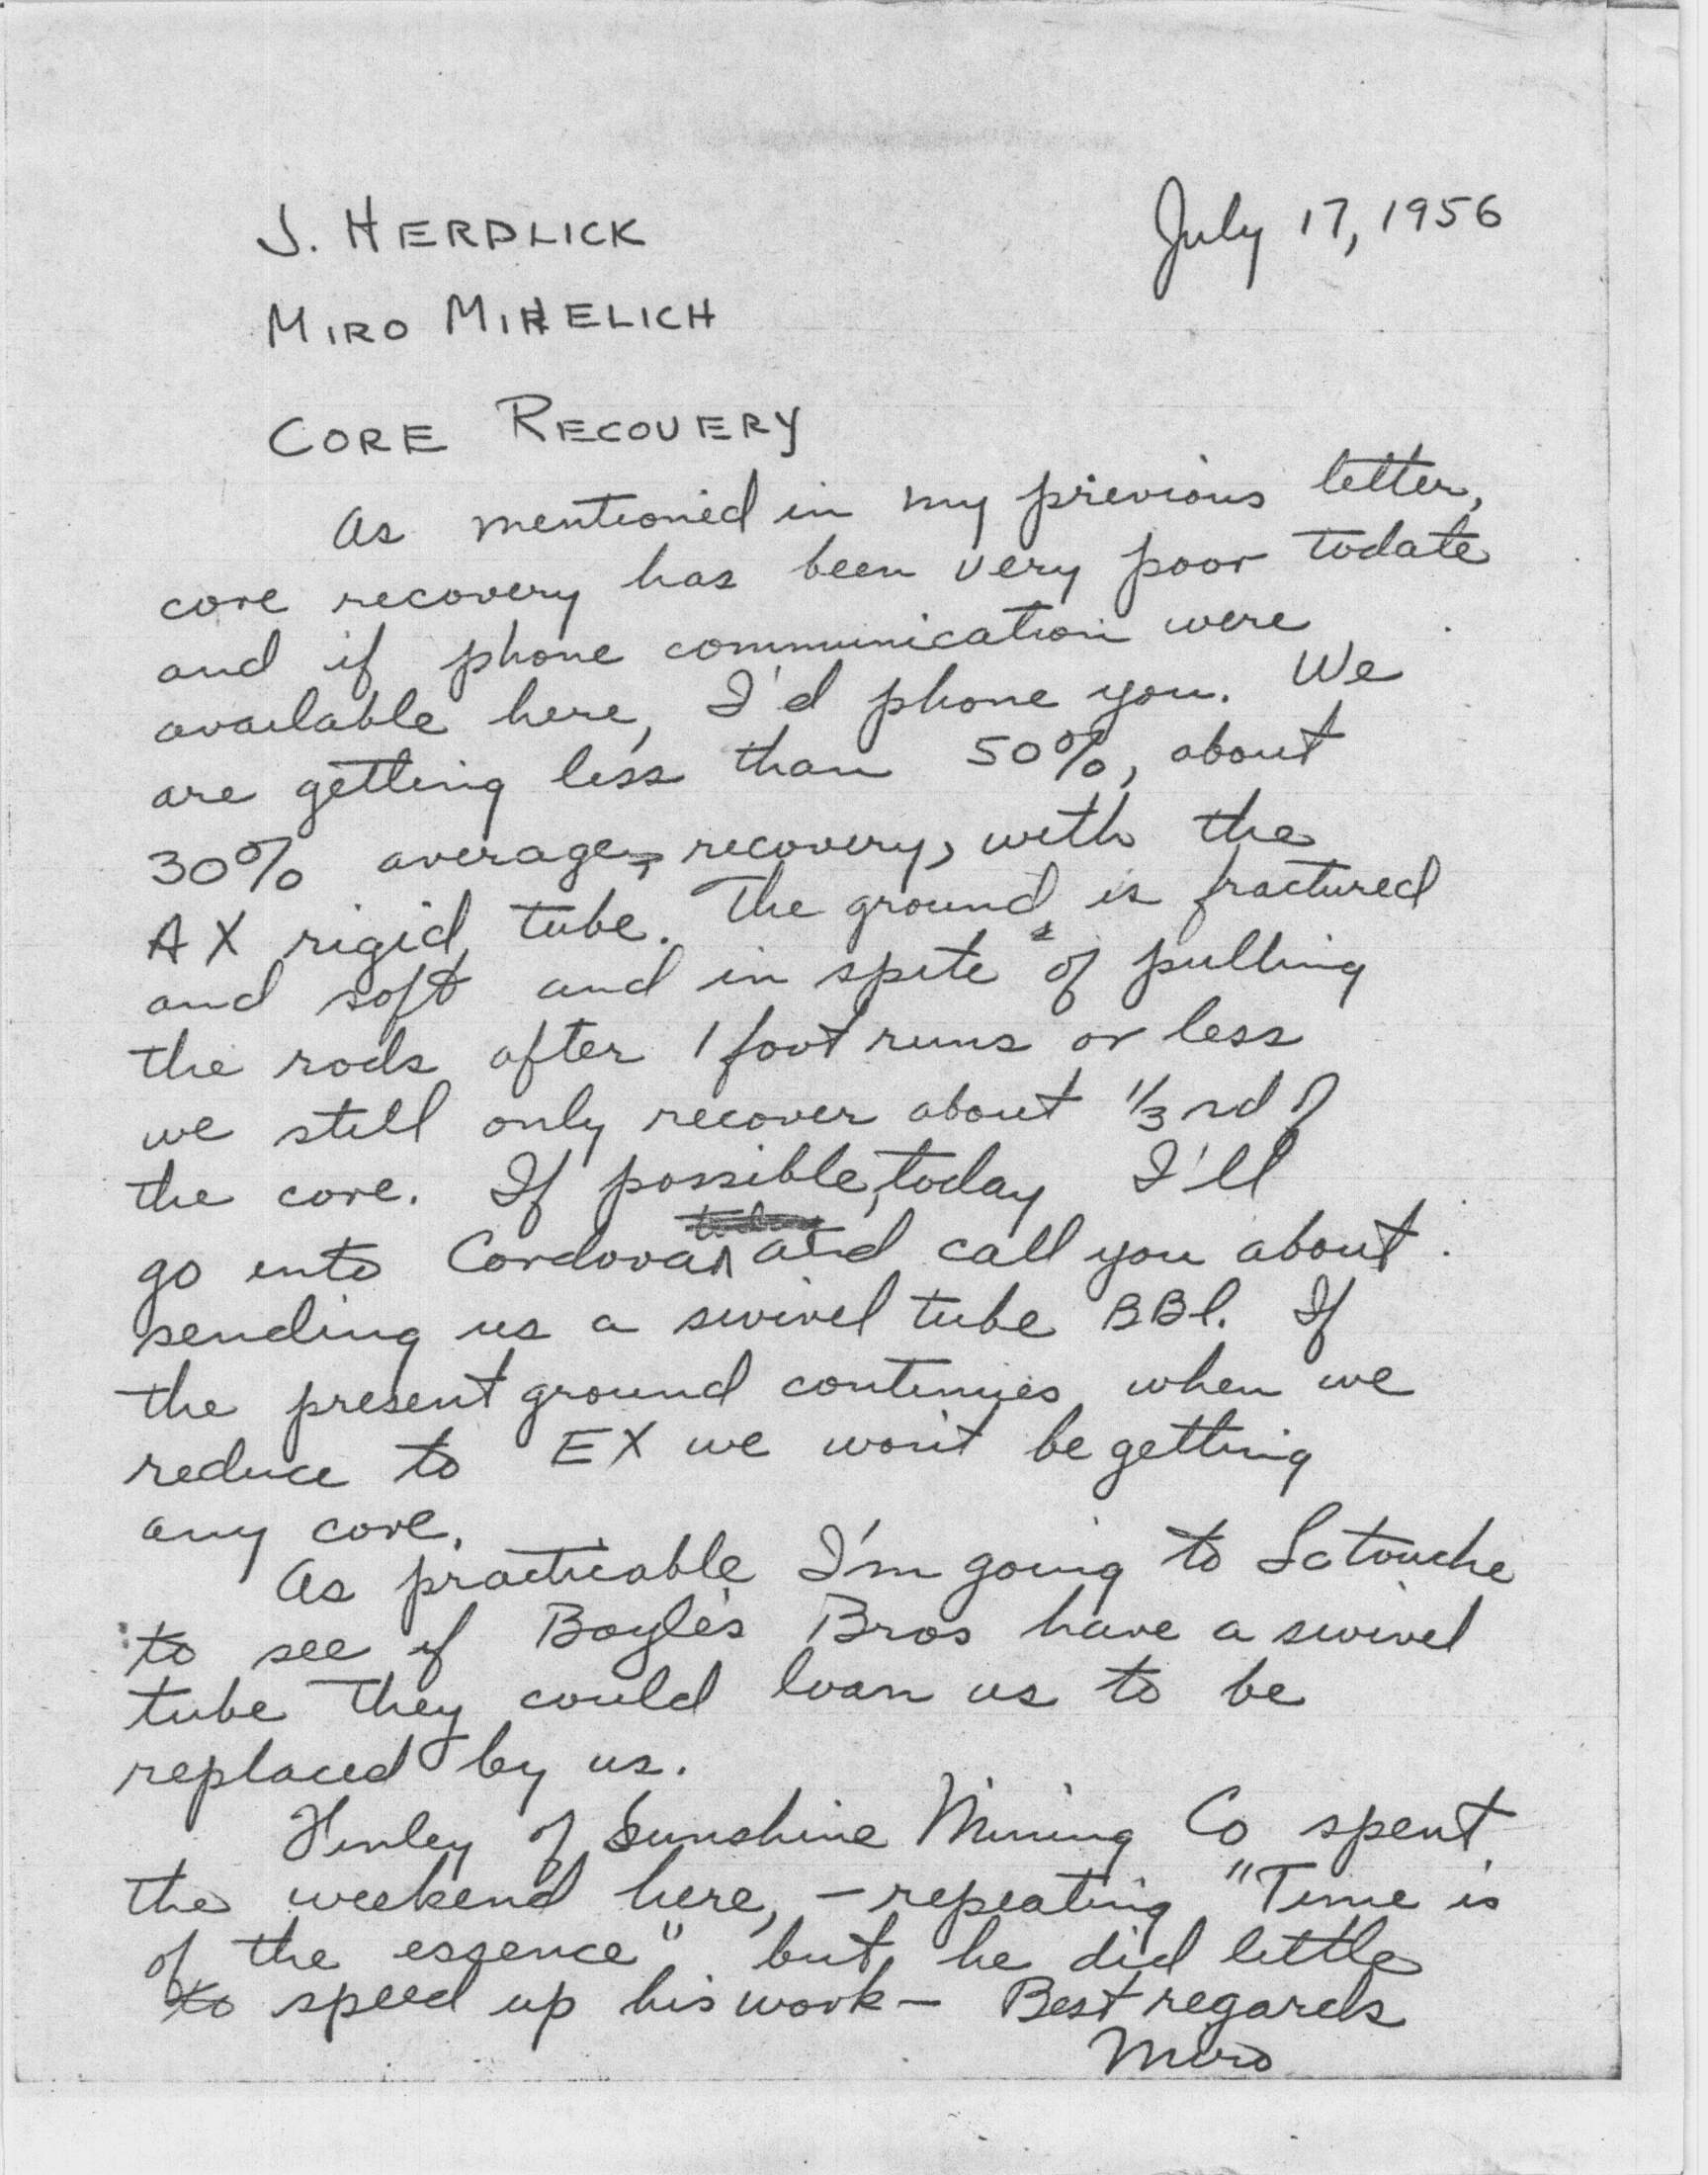 J. HERDLICK
July 17, 1956
MIRO MIHELICH
CORE RECOVERY
As mentioned in my previous letter,
core recovery has been very poor todate
and if phone communication were
available here, I'd phone you. We
are getting less than 50%, about
30% average, recovery, with the
AX rigid tube. The ground, is fractured
and soft and in spite of pulling
the rods after 1 foot runs or less
we still only recover about 1/3 rd of
the core. If possible, today I'll
go into Cordova and call you about
sending us a swivel tube BBl. If
the present ground continues when we
reduce to EX we won't be getting
any core.
As practicable I'm going to Latouche
to see if Boyle's Bros have a swivel
tube they could loan us to be
replaced by us.
of Sunshine Mining Co spent
the weekend here, - repeating "Time is
of the essence" but he did little
to speed up his work - Best regards
Miro